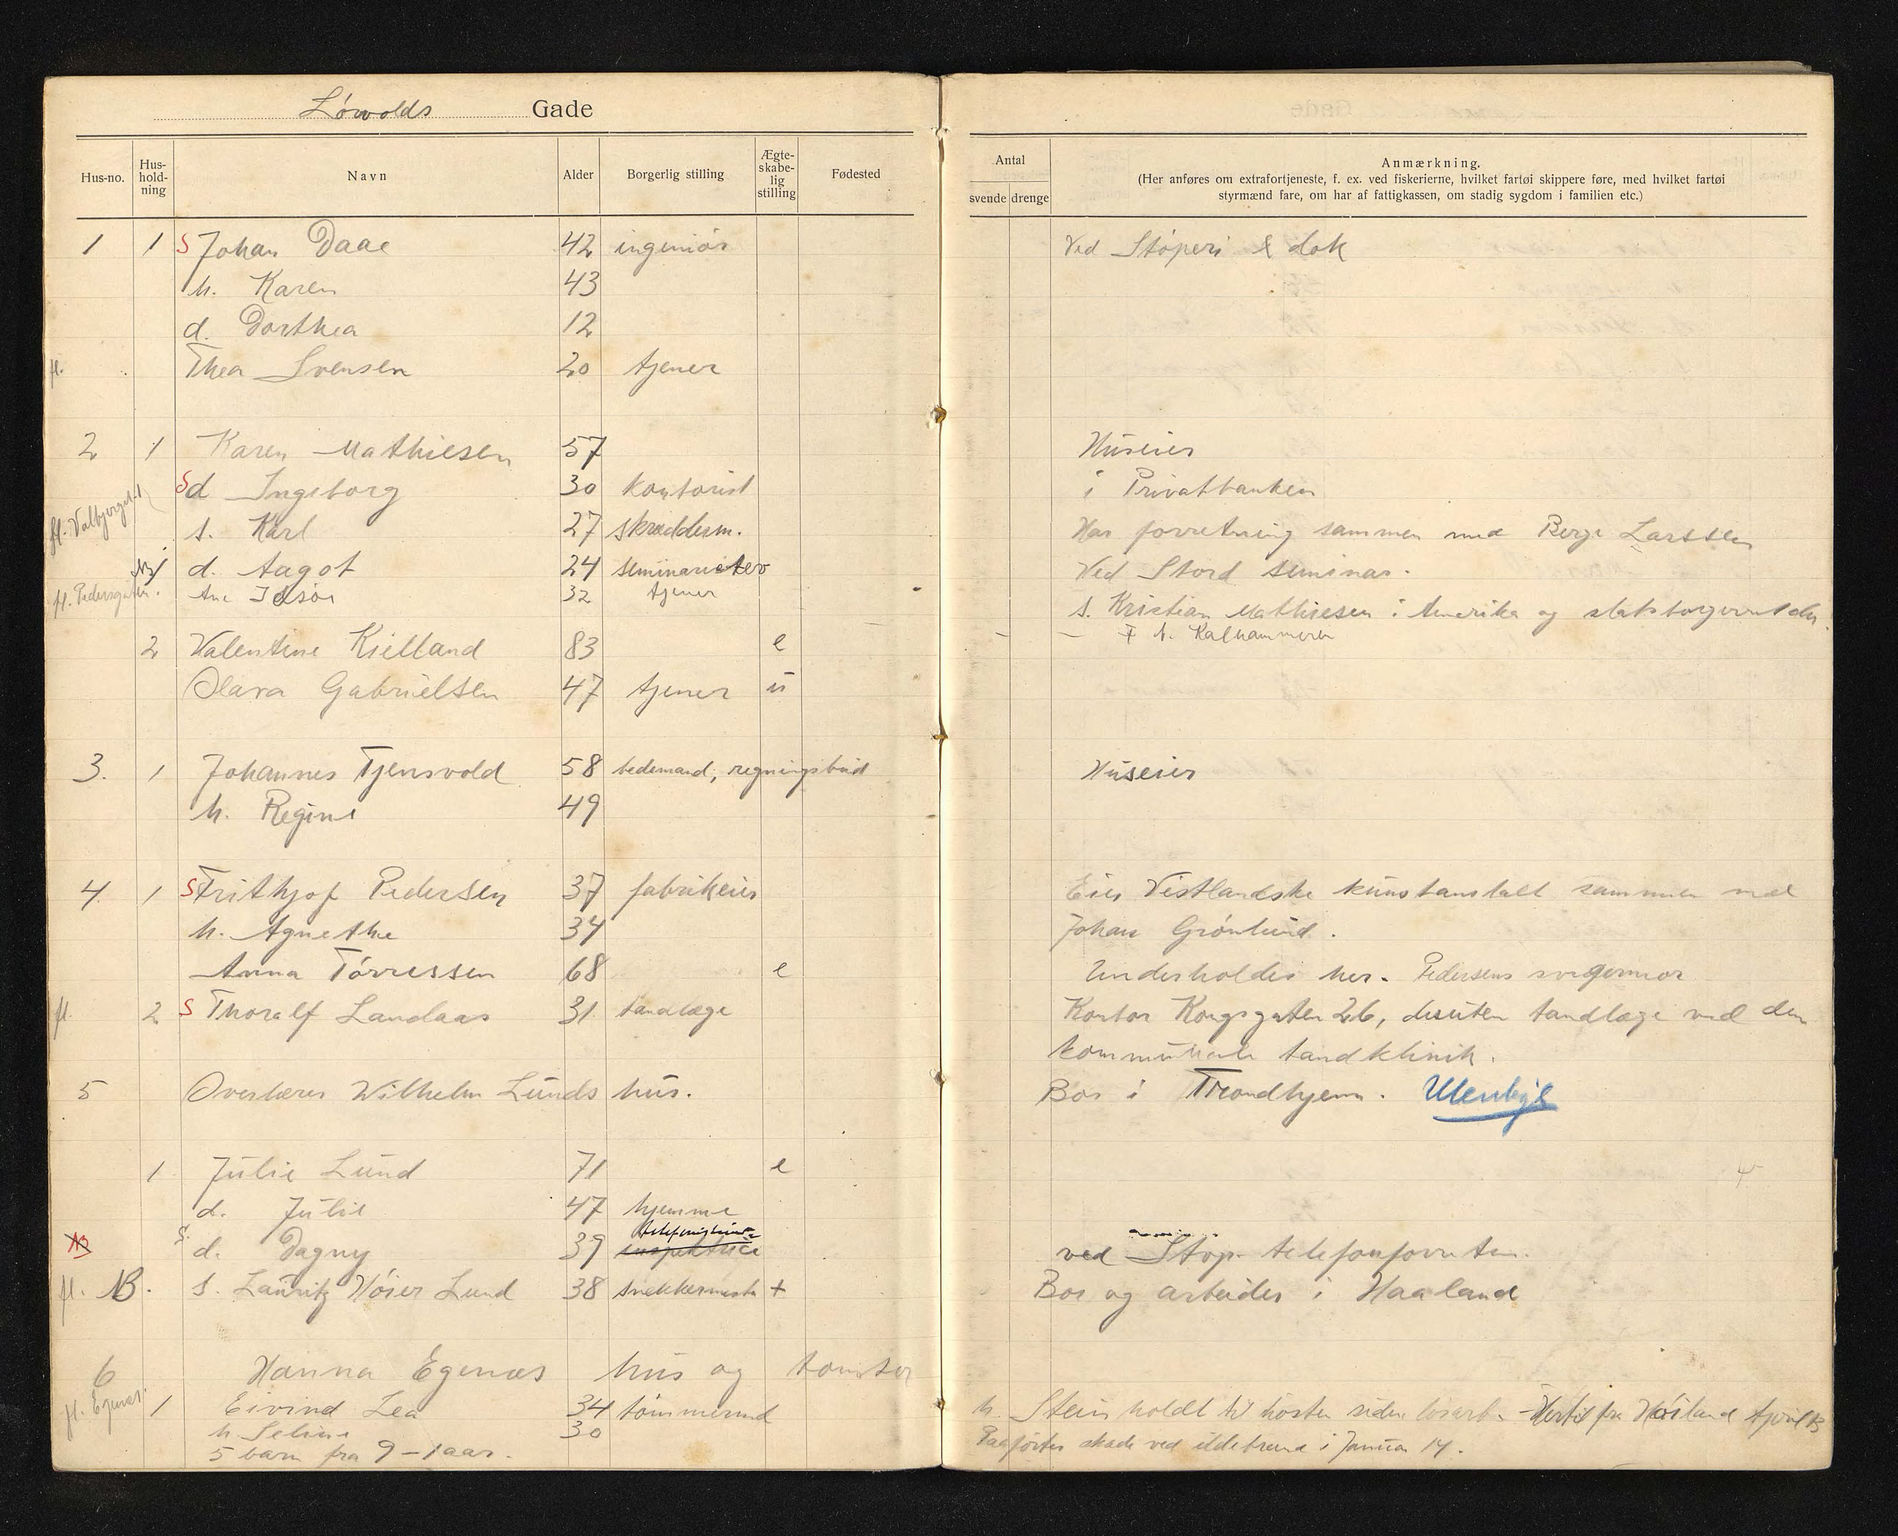 Løwolds Gade
Hus-no. Hus-hold-ning Navn Alder Borgerlig stilling Ægte-skabe-lig stilling Fødested
Antal
svende drenge
Anmærkning.
(Her anføres om extrafortjeneste, f. ex. ved fiskerierne, hvilket fartøi skippere føre, med hvilket fartøi
styrmænd fare, om har af fattigkassen, om stadig sygdom i familien etc.)
1 1 S Johan Daae 42 ingeniør Ved Støperi & dok
h. Karen 43
d. Dorthea 12
fl. Thea Svensen 20 tjener
2 1 Karen Mathiesen 57 Huseier
S d Ingeborg 30 kontorist i Privatbanken
fl. Valbjerget 1 s. Karl 27 skræderm. Har forretning sammen med Berge Larssen
d. Aagot 24 seminarielev Ved Stord seminar.
fl. Pedersgaten. Ane 32 tjener s. Kristian Mathiesen i Amerika og
2 Valentine Kielland 83 e
Olava Gabrielsen 47 tjener u
3. 1 Johannes Tjensvold 58 bedemand, regningsbud Huseier
h. Regine 49
4. 1 S Frithjof Pedersen 37 fabrikeier Eier Vestlandske kunstanstalt sammen med
h. Agnethe 34 Johan Grønlund.
Anna Tørressen 68 e Underholdes her. Pedersens svigermor
fl. 2 S Thoralf Landaas 31 tandlæge Kontor Kongsgaten 26, desuten tandlæge ved den
kommunale tandklinik.
5 Overlærer Wilhelm Lunds hus. Bor i Trondhjem.
1 Julie Lund 71 e
d. Julie 47 hjemme
NB S. d. Dagny 39 ved Stav. telefonforretn.
fl. NB. s. Lauritz Høier Lund 38 snekkermester + Bor og arbeider i Haaland
6 Hanna Egenæs hus og tomter
fl. Egenæs 1 Eivind Lea 34 tømmermd
h Seline 30
5 barn fra 9 – 1 aar.
ved ildebrand i Januar 14.